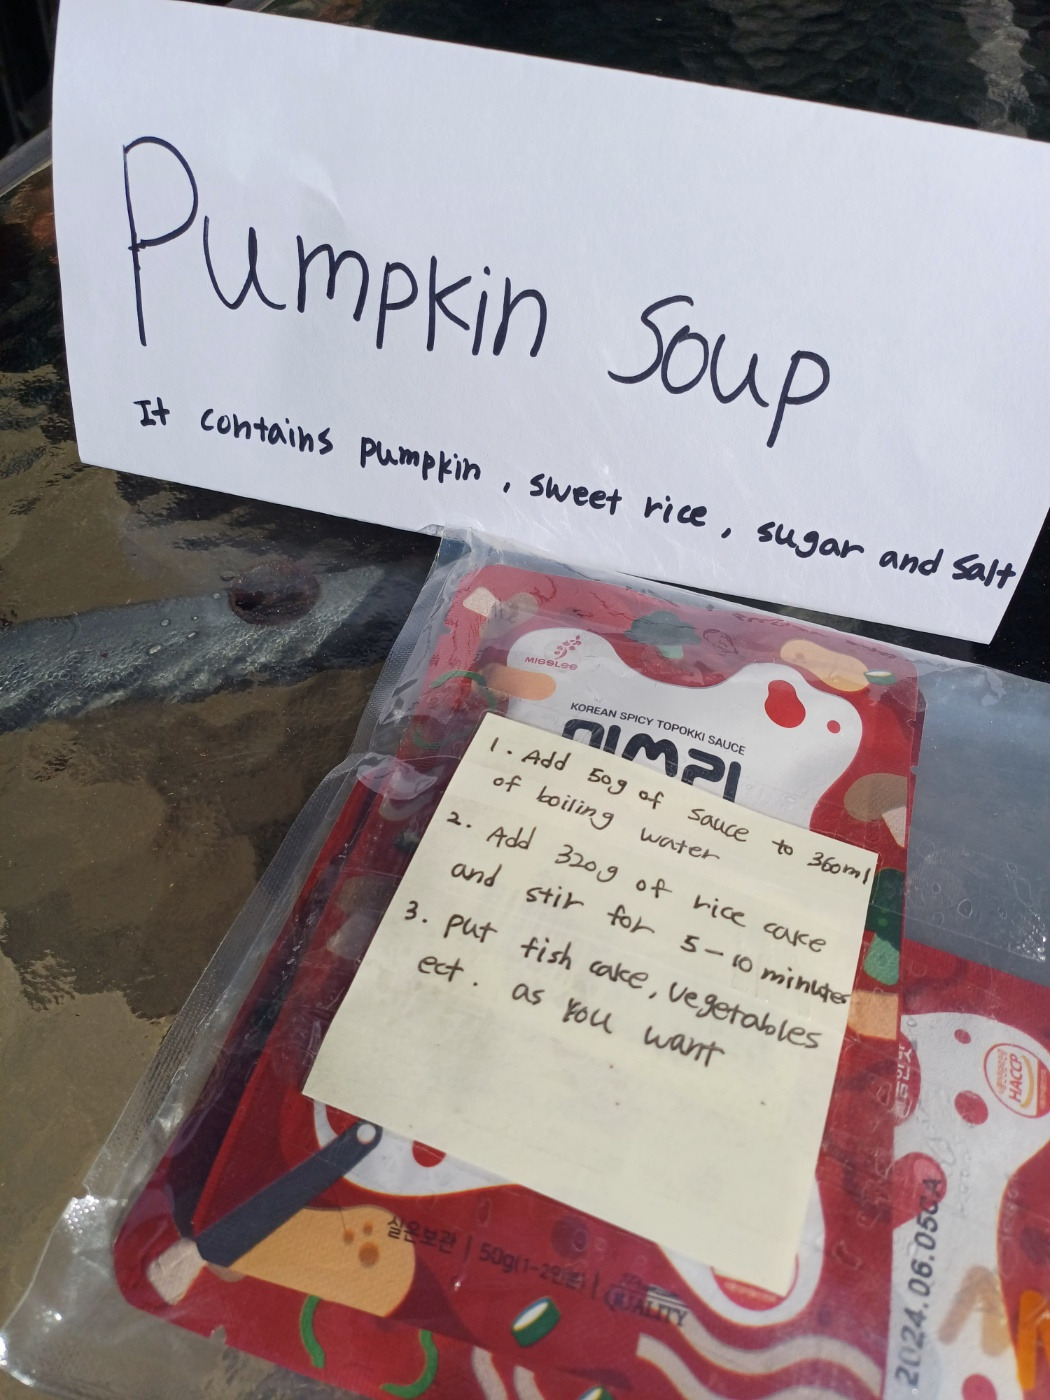 Pumpkin Soup
It contains pumpkin, sweet rice, sugar and salt
MISSLEE
KOREAN SPICY TOPOKKI SAUCE
1. Add 50g of sauce to 360ml
of boiling water
2. Add 320g of rice cake
and stir for 5-10 minutes
3. put fish cake, vegetables
ect. as you want
HACCP
실온보관 | 50g(1-2인분) |
QUALITY
2024.06.05CA